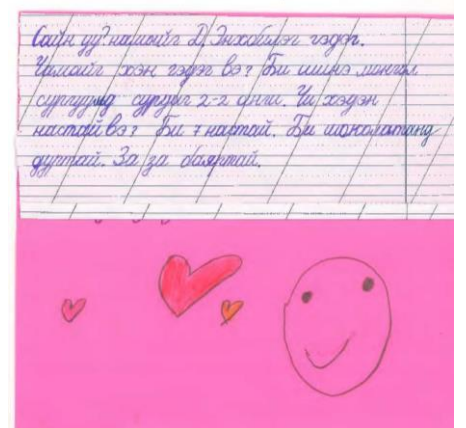 Сайн уу? намайг Д. Энхбилэг гэдэг.
Чамайг хэн гэдэг вэ? Би шинэ монгол
сургуульд сурдаг 2-2 анги. Чи хэдэн
настай вэ? Би 7 настай. Би шоколатанд
дуртай. За за баяртай.